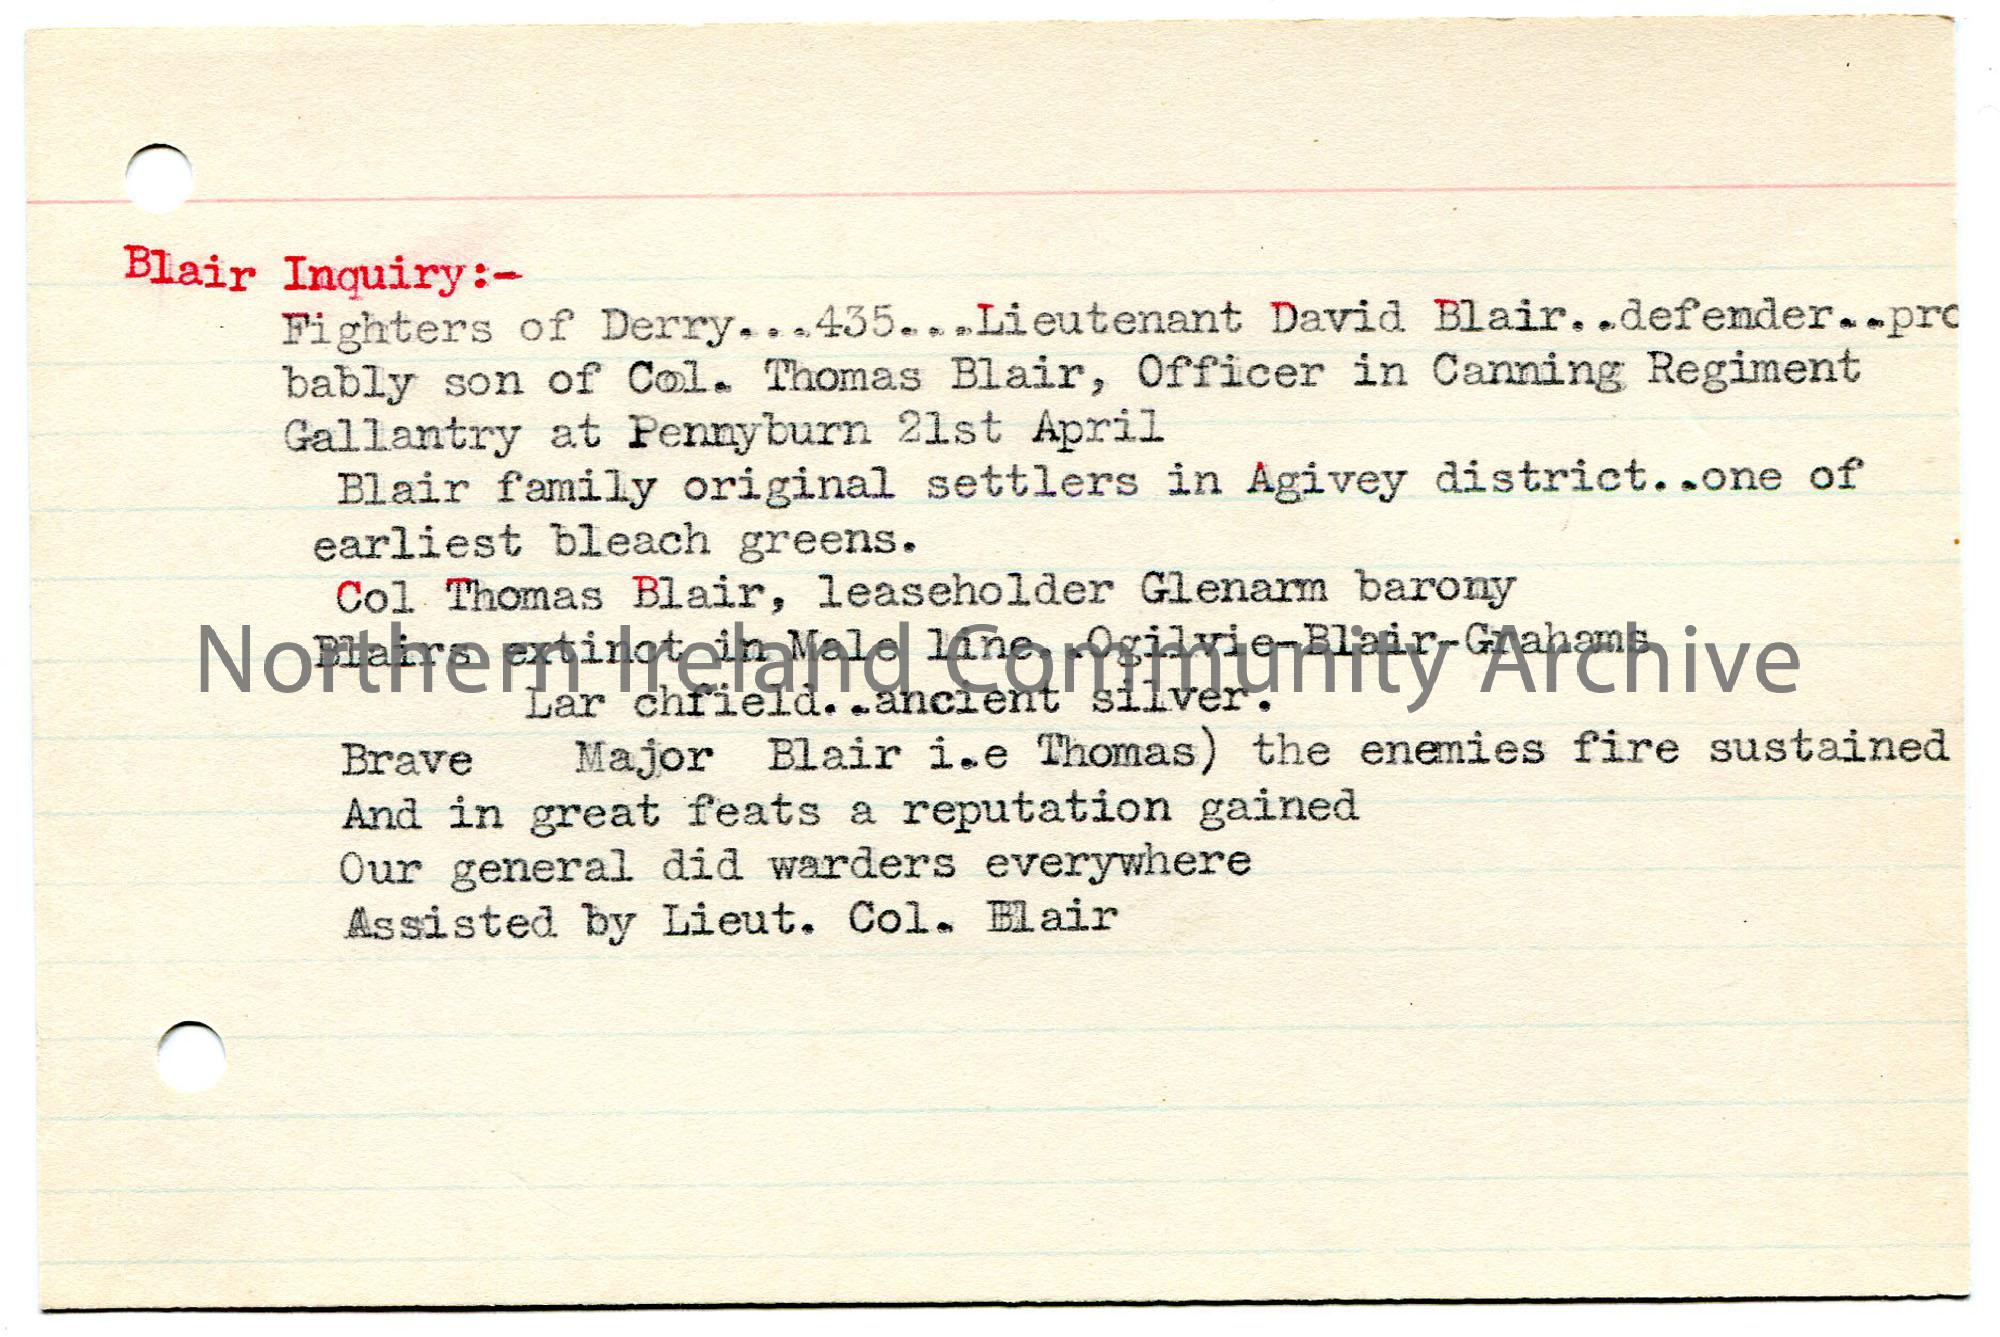 Blair Inquiry:-
Fighters of Derry...435...Lieutenant David Blair..defender..pro
bably son of Col. Thomas Blair, Officer in Canning Regiment
Gallantry at Pennyburn 21st April
Blair family original settlers in Agivey district..one of
earliest bleach greens.
Col Thomas Blair, leaseholder Glenarm barony
Blairs extinct in Male line..Ogilvie-Blair-Grahams
Northern Ireland Community Archive
Lar chfield..ancient silver.
Brave Major Blair i.e Thomas) the enemies fire sustained
And in great feats a reputation gained
Our general did warders everywhere
Assisted by Lieut. Col. Blair